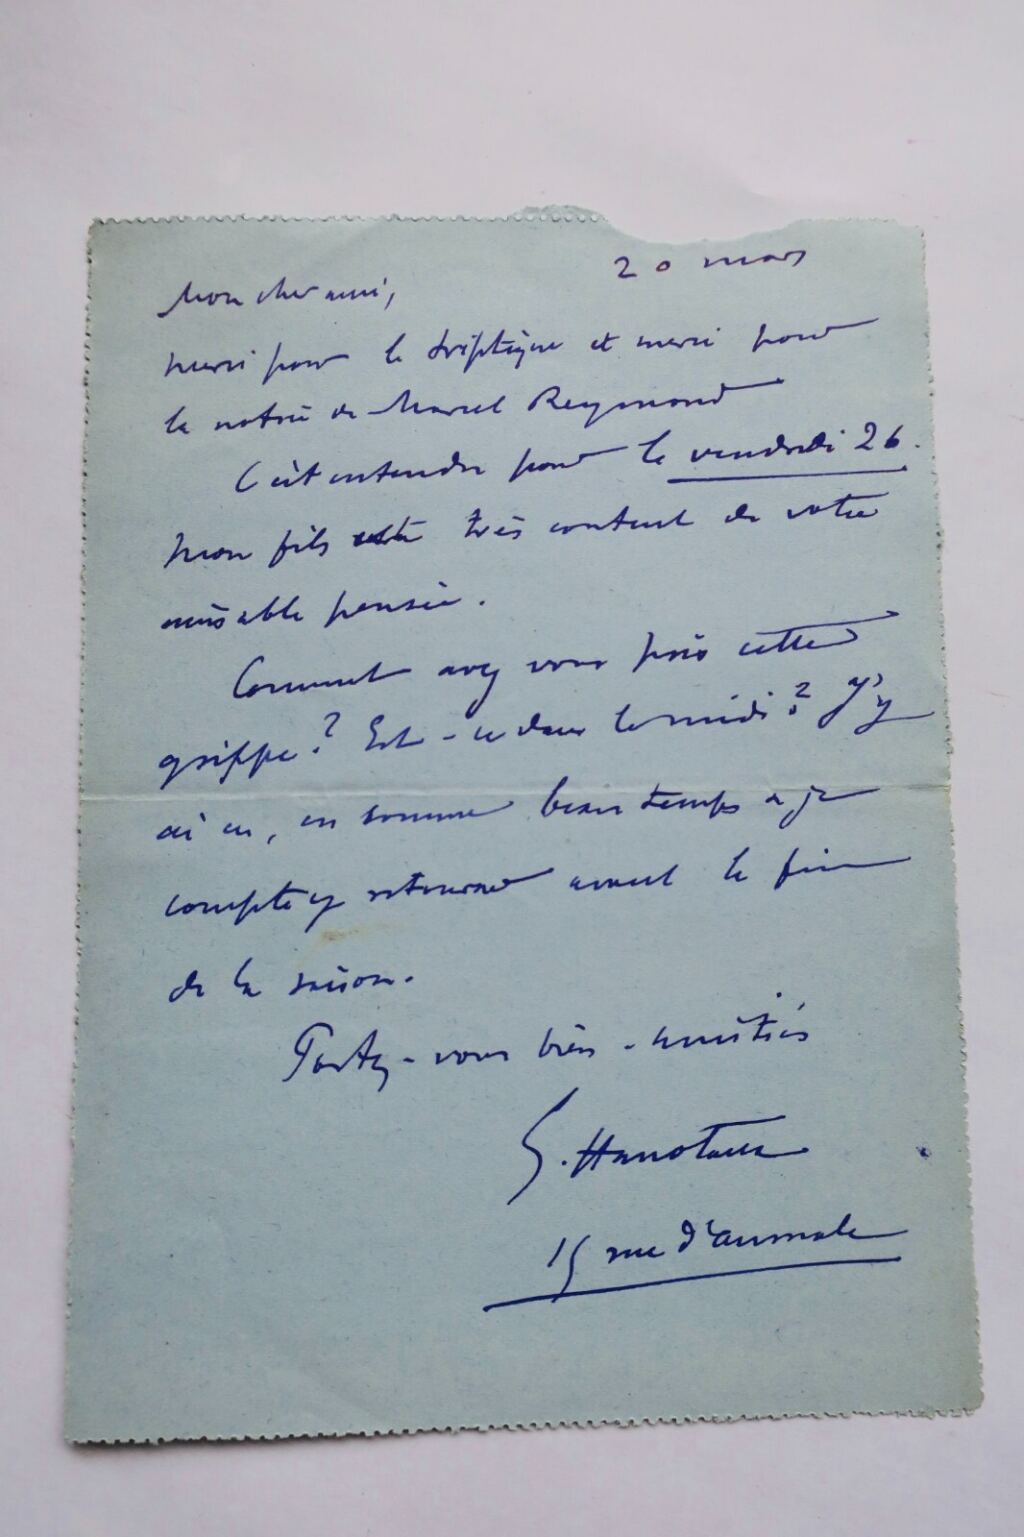 20 mars
Mon cher ami,
merci pour le triptique et merci pour
la notice de Marcel Reymond
C'est entendu pour le vendredi 26.
Mon fils très content de votre
aimable pensée.
Comment avez vous pris cette
grippe? Est-ce dans le midi? J'y
ai eu, en somme beau temps et je
compte y retourner avant la fin
de la saison.
Portez-vous bien - amitiés
G. Hanotaux
15 rue d'aumale